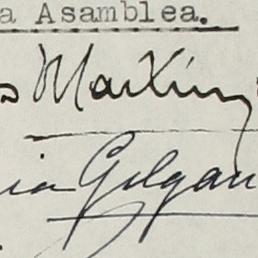 a Asamblea.
s Martin
ia Gelgau